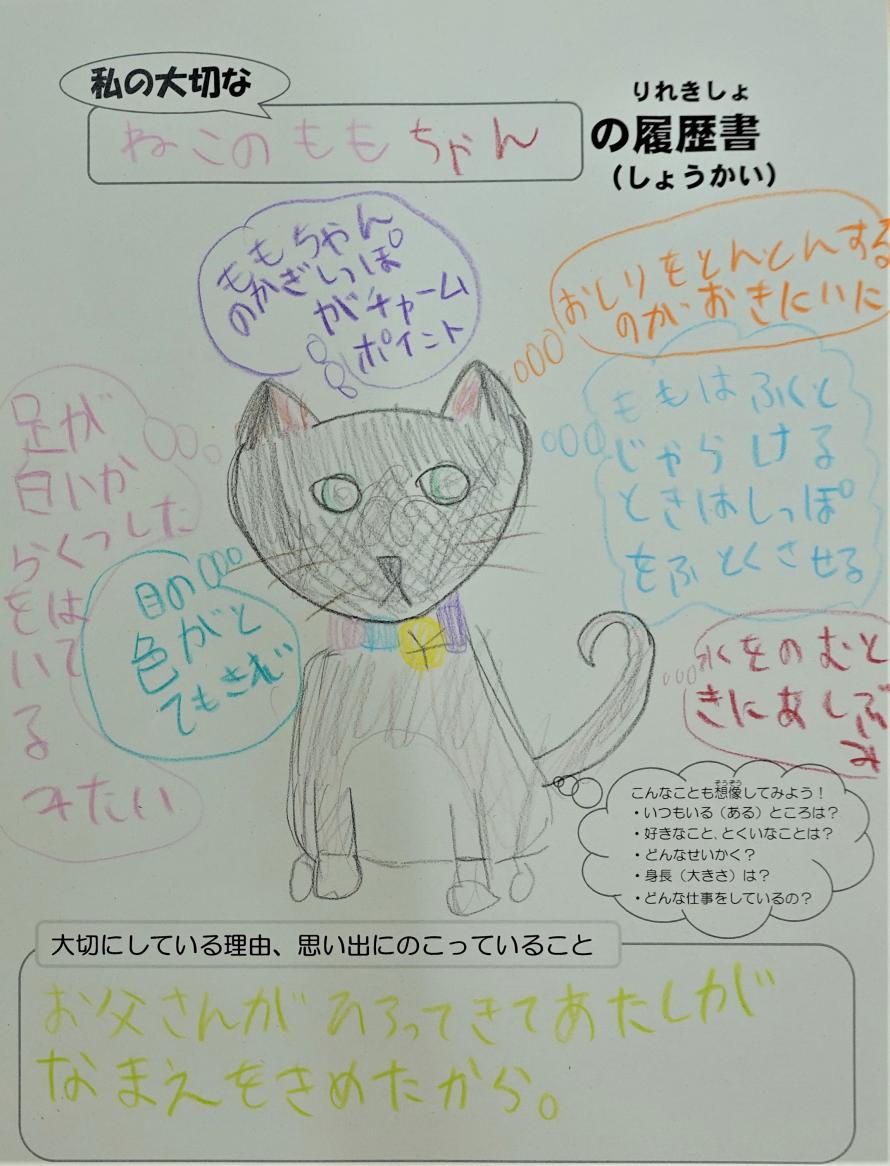 私の大切な
ねこのももちゃん
りれきしょ
の履歴書
(しょうかい)
ももちゃん
のかぎしっぽ
がチャーム
ポイント
おしりをとんとんする
のがおきにいに
足が
白いか
らくつした
をは
いて
る
みたい
ももはふくと
じゃらける
ときはしっぽ
をふとくさせる
目の
色がと
てもきれい
水をのむと
きにあしぶ
み
そうぞう
こんなことも想像してみよう!
・いつもいる(ある)ところは?
・好きなこと、とくいなことは?
・どんなせいかく?
・身長(大きさ)は?
・どんな仕事をしているの?
大切にしている理由、思い出にのこっていること
お父さんがひろってきてあたしが
なまえをきめたから。